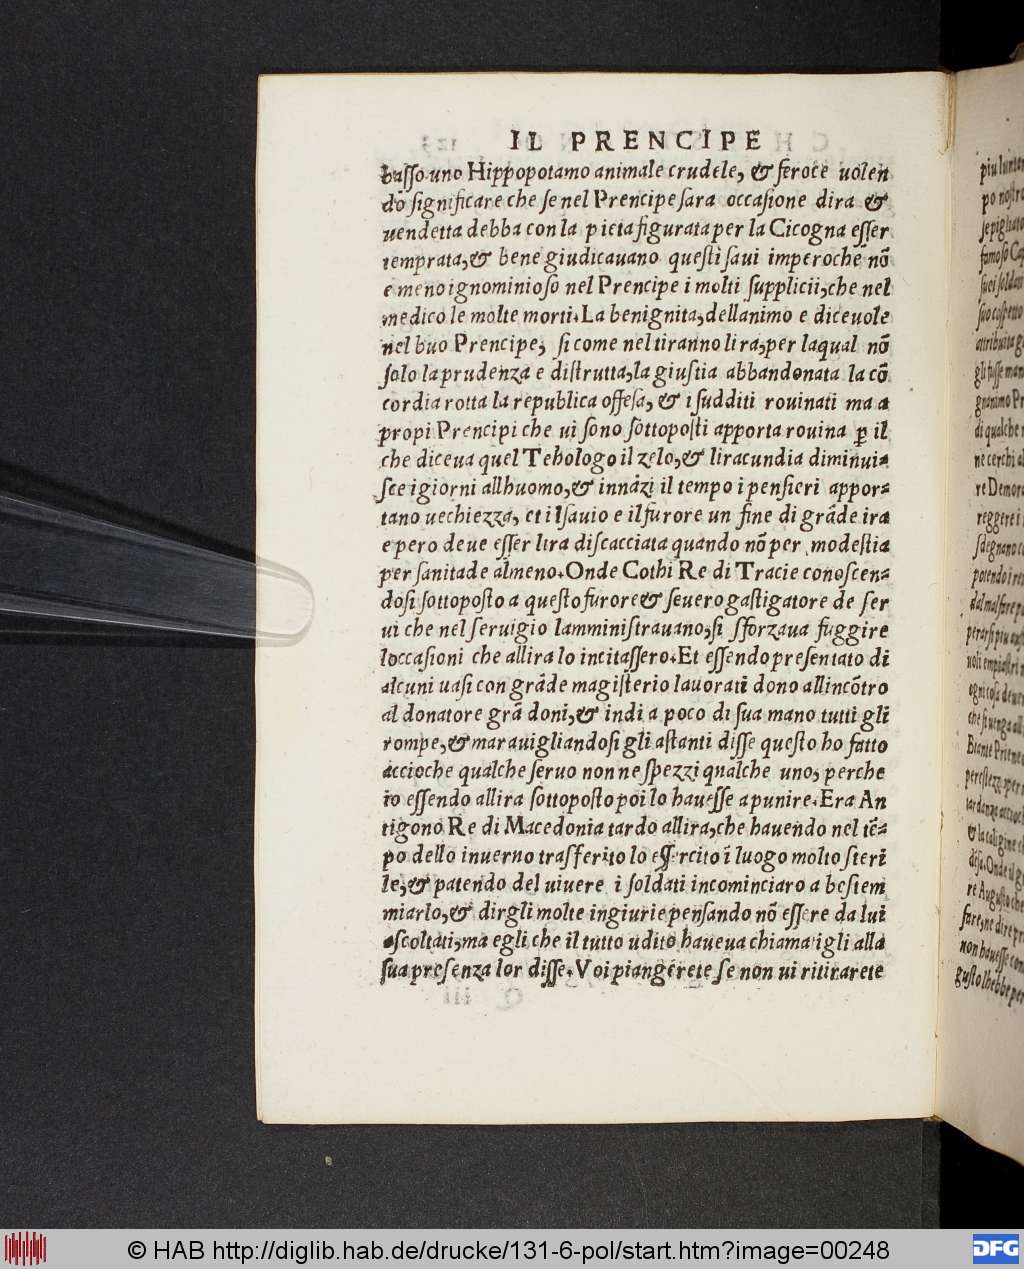 IL PRENCIPE
basso uno Hippopotamo animale crudele, & feroce uolen
do significare che se nel Prencipe sara occasione dira &
uendetta debba con la pieta figurata per la Cicogna esser
temprata, & bene giudicauano questi saui imperoche nõ
e meno ignominioso nel Prencipe i molti supplicii, che nel
medico le molte morti. La benignita, dellanimo e diceuole
nel buo Prencipe, si come nel tiranno lira, per laqual nõ
solo la prudenza e distrutta, la giustia abbandonata la cõ
cordia rotta la republica offesa, & i sudditi rouinati ma a
propi Prencipi che ui sono sottoposti apporta rouina ꝑ il
che diceua quel Tehologo il zelo, & liracundia diminui=
sce i giorni allhuomo, & innãzi il tempo i pensieri appor=
tano uechiezza, et il sauio e il furore un fine di grãde ira
e pero deue esser lira discacciata quando nõ per modestia
per sanitade almeno. Onde Cothi Re di Tracie conoscen=
dosi sottoposto a questo furore & seuero gastigatore de ser
ui che nel seruigio lamministrauano, si sforzaua fuggire
loccasioni che allira lo incitassero. Et essendo presentato di
alcuni uasi con grãde magisterio lauorati dono allincõtro
al donatore grã doni, & indi a poco di sua mano tutti gli
rompe, & marauigliandosi gli astanti disse questo ho fatto
accioche qualche seruo non ne spezzi qnalche uno, perche
io essendo allira sottoposto poi lo hauesse a punire. Era An
tigono Re di Macedonia tardo allira, che hauendo nel tẽ=
po dello inuerno trasferito lo essercito ĩ luogo molto steri
le, & patendo del uiuere i soldati incominciaro a bestem
miarlo, & dirgli molte ingiurie pensando nõ essere da lui
ascoltati, ma egli che il tutto udito haueua chiamatigli alla
sua presenza lor disse. Voi piangerete se non ui ritirarete
piu lontan
po nostro
se pigliato
famoso Cap
suoi soldati
suo cospetto
attribuita g
gli fusse man
gnanimo Pr
di qualche
ne cerchi al
re Demora
reggere i
sdegnano c
potendo i re
dal mal fare p
© HAB http://diglib.hab.de/drucke/131-6-pol/start.htm?image=00248
DFG